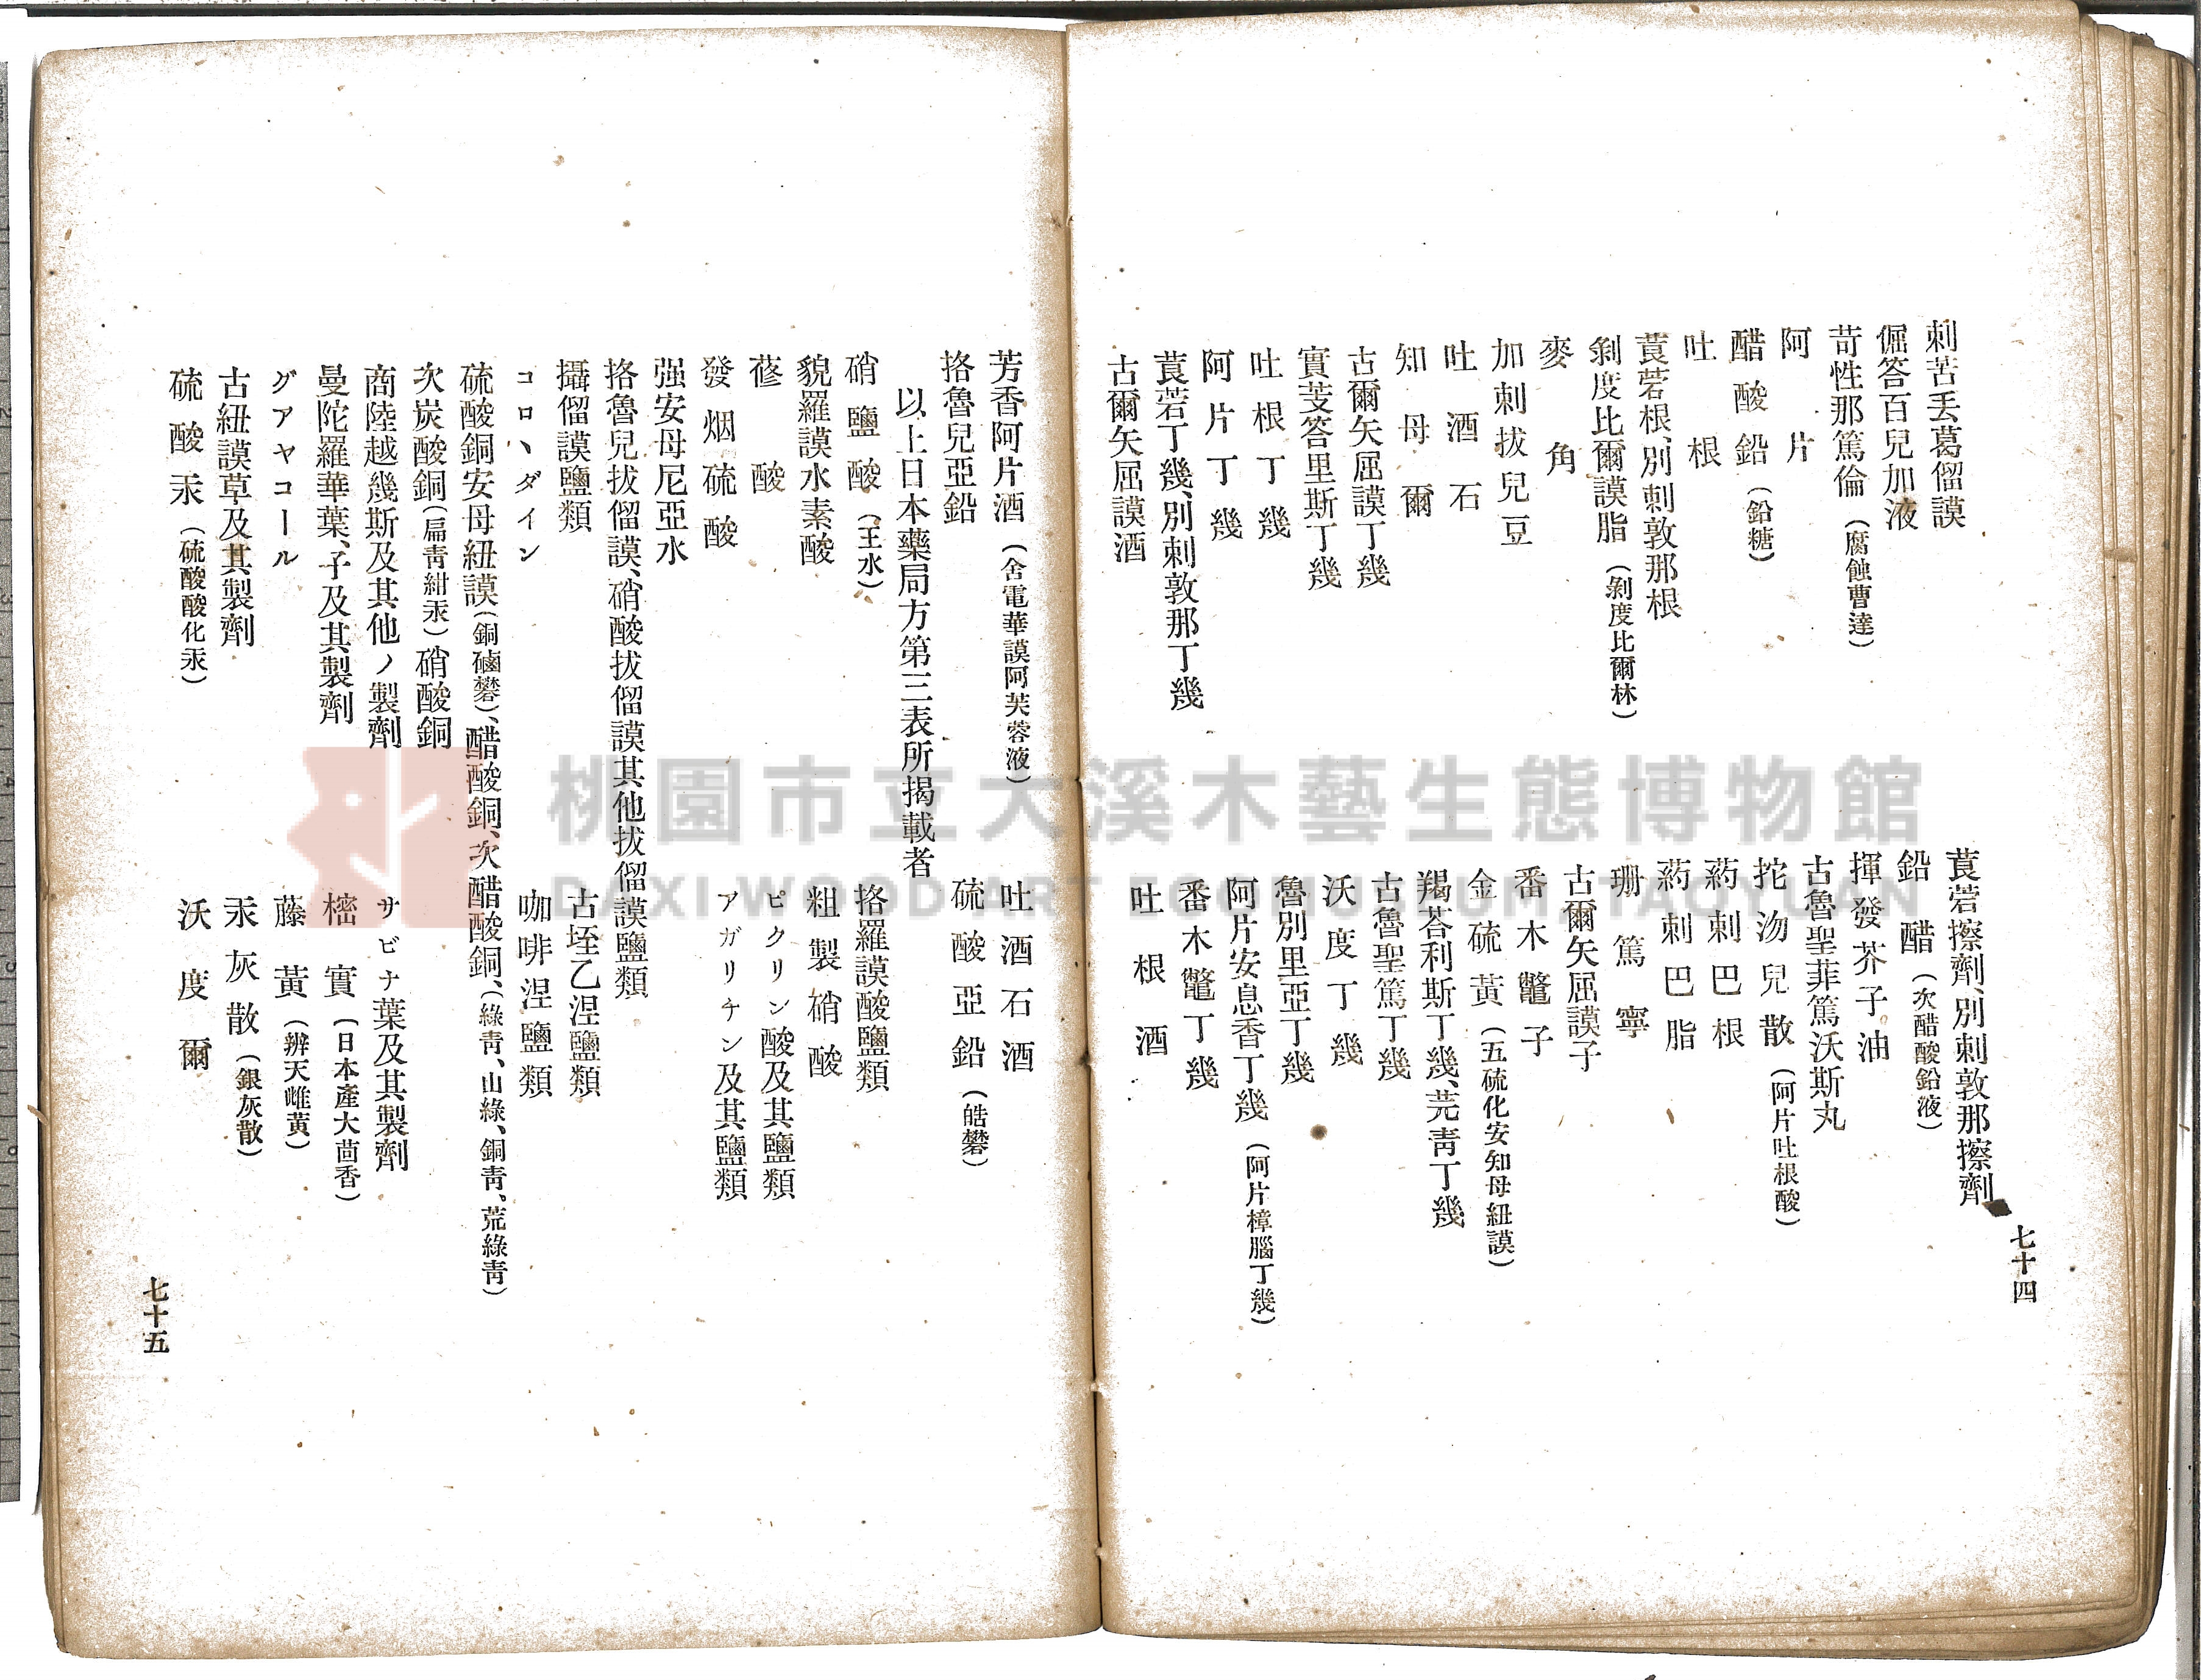 七十四
刺苦丢葛儡謨
莨菪擦劑、別剌敦那擦劑
倔答百兒加液
鉛醋（次醋酸鉛液）
苛性那篤倫（腐蝕曹達）
揮發芥子油
阿片
古魯聖菲篤沃斯丸
醋酸鉛（鉛糖）
挖沕兒散（阿片吐根酸）
吐根
葯剌巴根
莨菪根、別剌敦那根
葯剌巴脂
剝度比爾謨脂（剝度比爾林）
珊篤寧
麥角
古爾矢屈謨子
加剌拔兒豆
番木鼈子
吐酒石
金硫黃（五硫化安知母紐謨）
知母爾
羯荅利斯丁幾、芫靑丁幾
古爾矢屈謨丁幾
古魯聖篤丁幾
實芰答里斯丁幾
沃度丁幾
吐根丁幾
魯別里亞丁幾
阿片丁幾
阿片安息香丁幾（阿片樟腦丁幾）
莨菪丁幾、別剌敦那丁幾
番木鼈丁幾
古爾矢屈謨酒
吐根酒
芳香阿片酒（舍電華謨阿芙蓉液）
吐酒石酒
挌魯兒亞鉛
硫酸亞鉛（皓礬）
以上日本藥局方第三表所揭載者
硝鹽酸（王水）
挌羅謨酸鹽類
貌羅謨水素酸
粗製硝酸
蓚酸
ピクリン酸及其鹽類
發烟硫酸
アガリチン及其鹽類
强安母尼亞水
挌魯兒拔儡謨、硝酸拔儡謨其他拔儡謨鹽類
攝儡謨鹽類
古垤乙涅鹽類
コロヽダイン
咖啡涅鹽類
硫酸銅安母紐謨（銅磠礬）、醋酸銅、次醋酸銅、（綠靑、山綠、銅靑。荒綠靑）
次炭酸銅（扁靑紺汞）、硝酸銅
商陸越幾斯及其他ノ製劑
サビナ葉及其製劑
曼陀羅華葉、子及其製劑
樒實（日本產大茴香）
グアヤコール
藤黃（辨天雌黃）
古紐謨草及其製劑
汞灰散（銀灰散）
硫酸汞（硫酸酸化汞）
沃度爾
七十五
桃園市立大溪木藝生態博物館
DAXI WOOD ART ECOMUSEUM, TAOYUAN